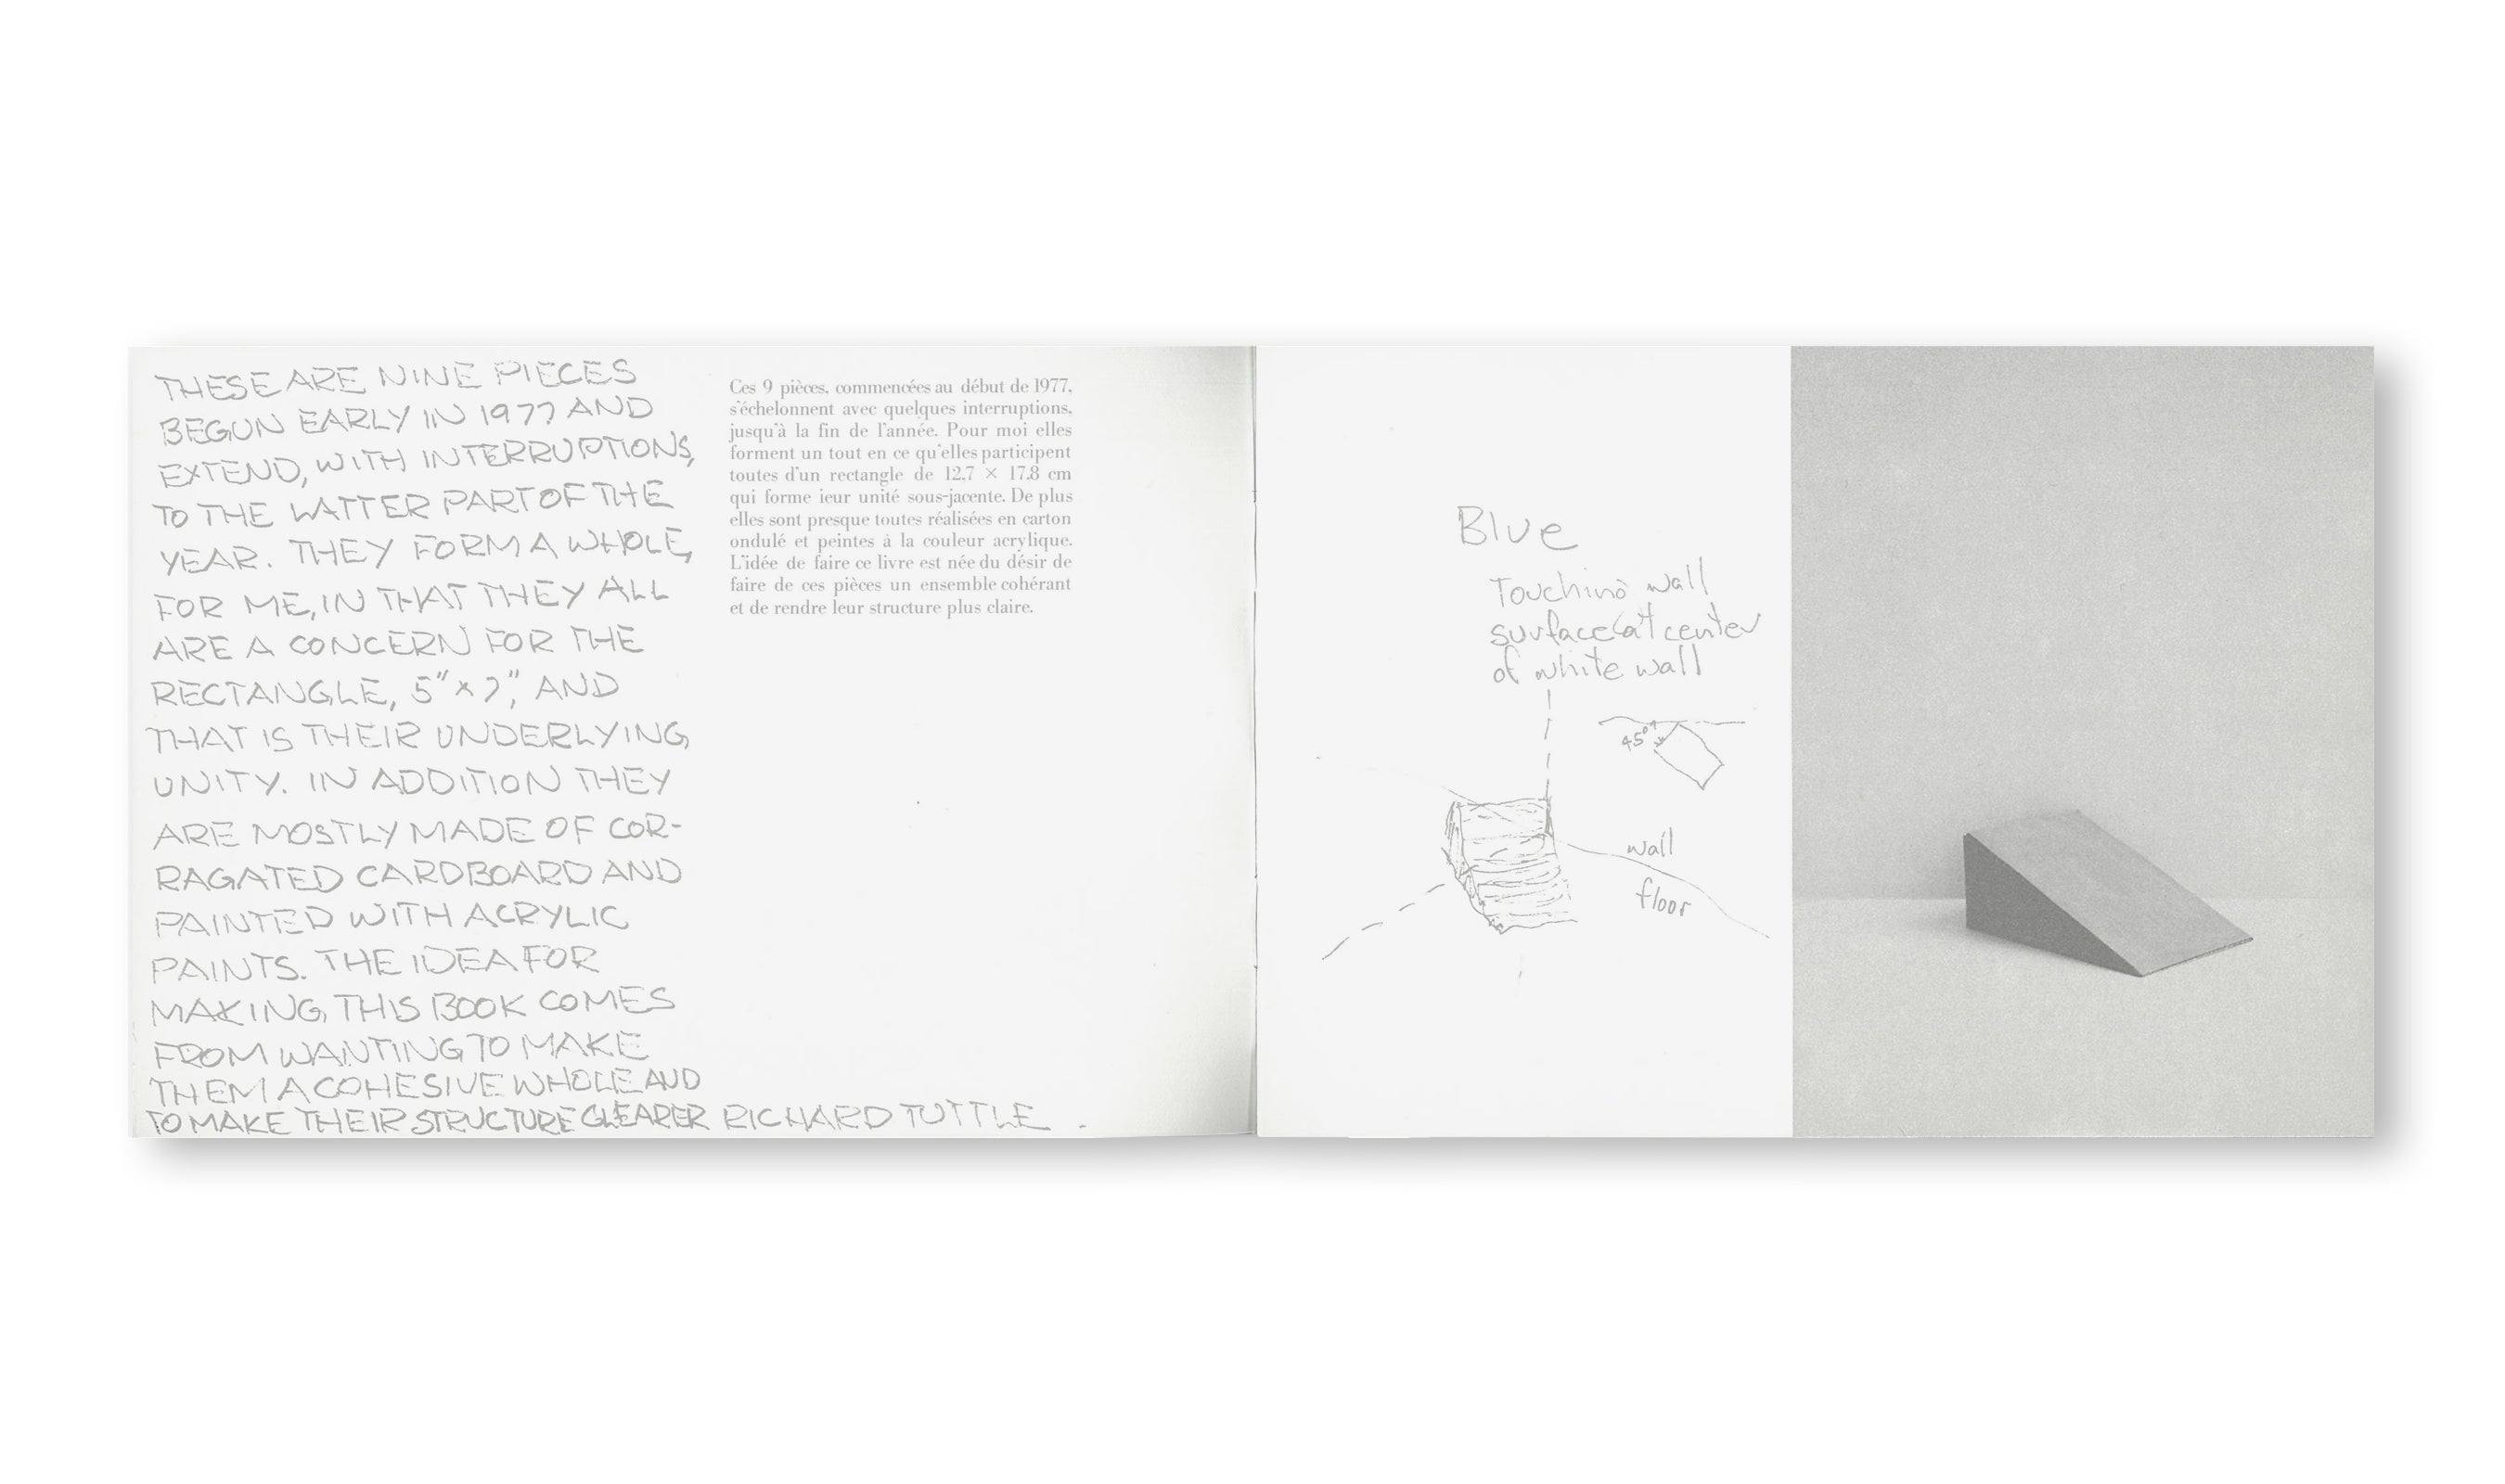 THESE ARE NINE PIECES
BEGUN EARLY IN 1977 AND
EXTEND, WITH INTERRUPTIONS,
TO THE LATTER PART OF THE
YEAR. THEY FORM A WHOLE,
FOR ME, IN THAT THEY ALL
ARE A CONCERN FOR THE
RECTANGLE, 5" x 7", AND
THAT IS THEIR UNDERLYING
UNITY. IN ADDITION THEY
ARE MOSTLY MADE OF COR-
RAGATED CARDBOARD AND
PAINTED WITH ACRYLIC
PAINTS. THE IDEA FOR
MAKING THIS BOOK COMES
FROM WANTING TO MAKE
THEM A COHESIVE WHOLE AND
TO MAKE THEIR STRUCTURE CLEARER RICHARD TUTTLE.
Ces 9 pièces, commencées au début de 1977,
s'échelonnent avec quelques interruptions,
jusqu'à la fin de l'année. Pour moi elles
forment un tout en ce qu'elles participent
toutes d'un rectangle de 12,7 × 17,8 cm
qui forme ieur unité sous-jacente. De plus
elles sont presque toutes réalisées en carton
ondulé et peintes à la couleur acrylique.
L'idée de faire ce livre est née du désir de
faire de ces pièces un ensemble cohérant
et de rendre leur structure plus claire.
Blue
Touching wall
surface at center
of white wall
45°
wall
floor